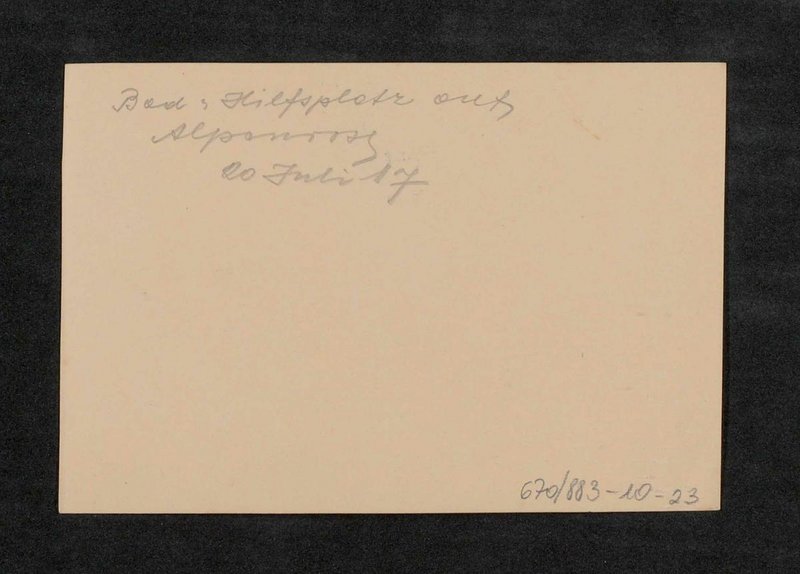 Bad u Hilfsplatz auf
Alpenrose
20 Juli 17
670/883-10-23